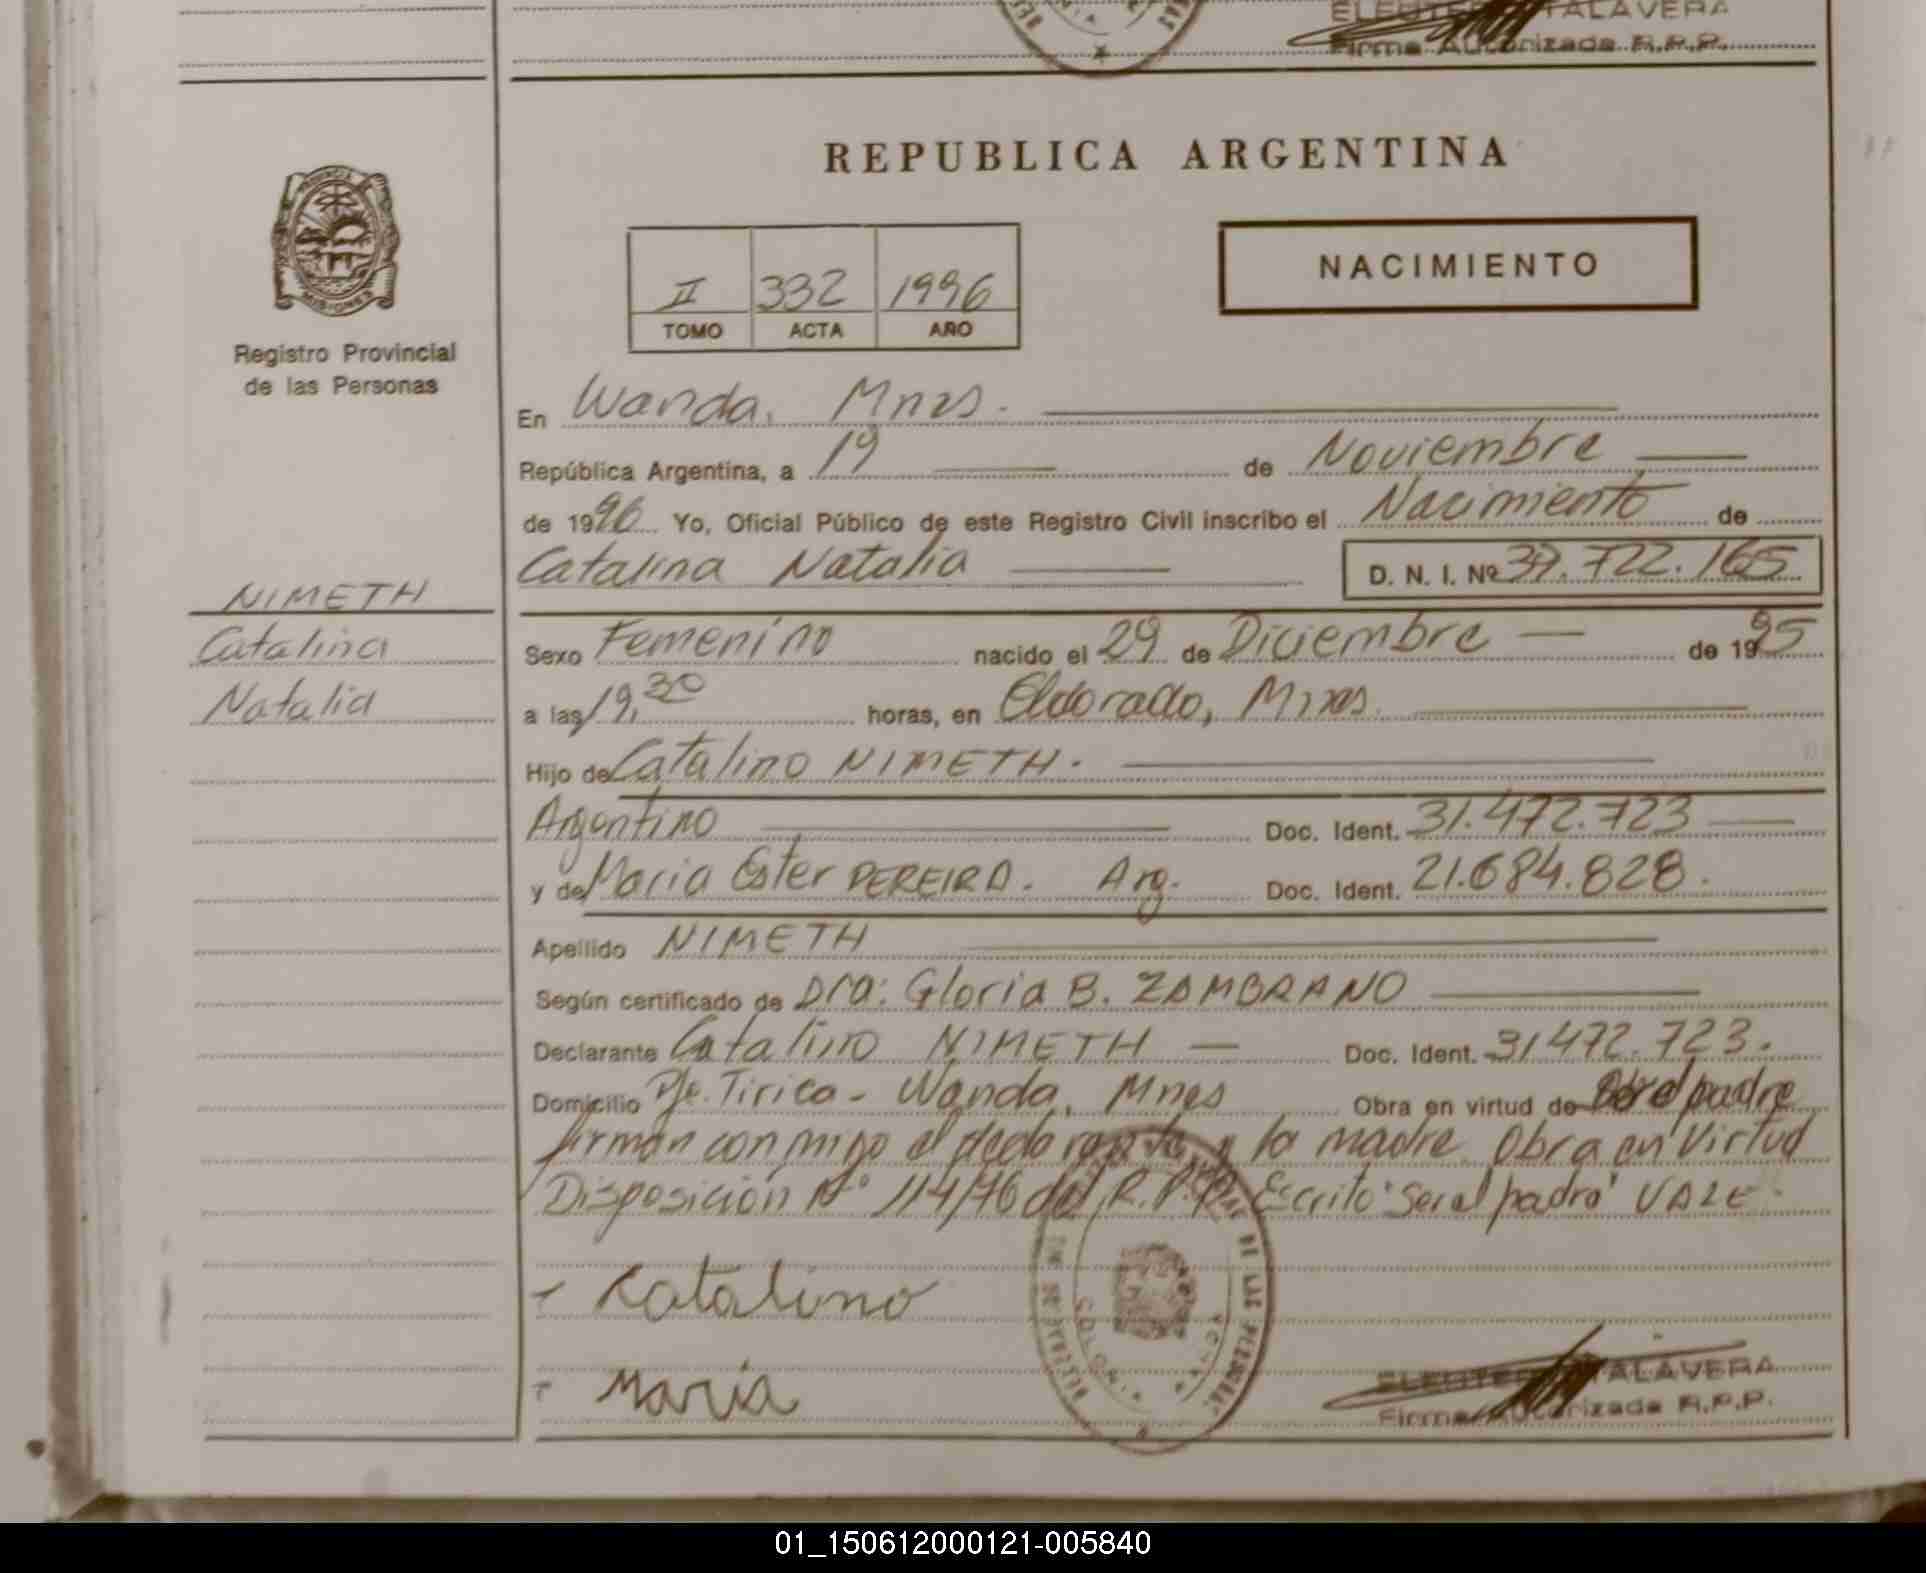 TALAVERA
Firma Autorizada R.P.P.
REPUBLICA ARGENTINA
PROVINCIA
MISIONES
Registro Provincial
de las Personas
II 332 1996
TOMO ACTA AÑO
NACIMIENTO
En Wanda, Mnes.
República Argentina, a 19 de Noviembre
de 1996 Yo, Oficial Público de este Registro Civil inscribo el Nacimiento de
Catalina Natalia D. N. I. Nº 39.722.165
NIMETH
Catalina
Natalia
Sexo Femenino nacido el 29 de Diciembre de 1995
a las 19,30 horas, en Eldorado, Mnes.
Hijo de Catalino NIMETH.
Argentino Doc. Ident. 31.472.723
y de Maria Ester PEREIRA. Arg. Doc. Ident. 21.684.828.
Apellido NIMETH
Según certificado de Dra: Gloria B. ZAMBRANO
Declarante Catalino NIMETH Doc. Ident. 31472.723.
Domicilio Pje. Tirica - Wanda, Mnes Obra en virtud de Ser el padre
firman con migo el declarante y la madre Obra en Virtud
Disposición Nº 114/76 del R.P.P. Escrito "Ser el padre" VALE.
- Catalino
- María
TALAVERA
Firma Autorizada R.P.P.
DE LAS PERSONAS
COLONIA
01_150612000121-005840